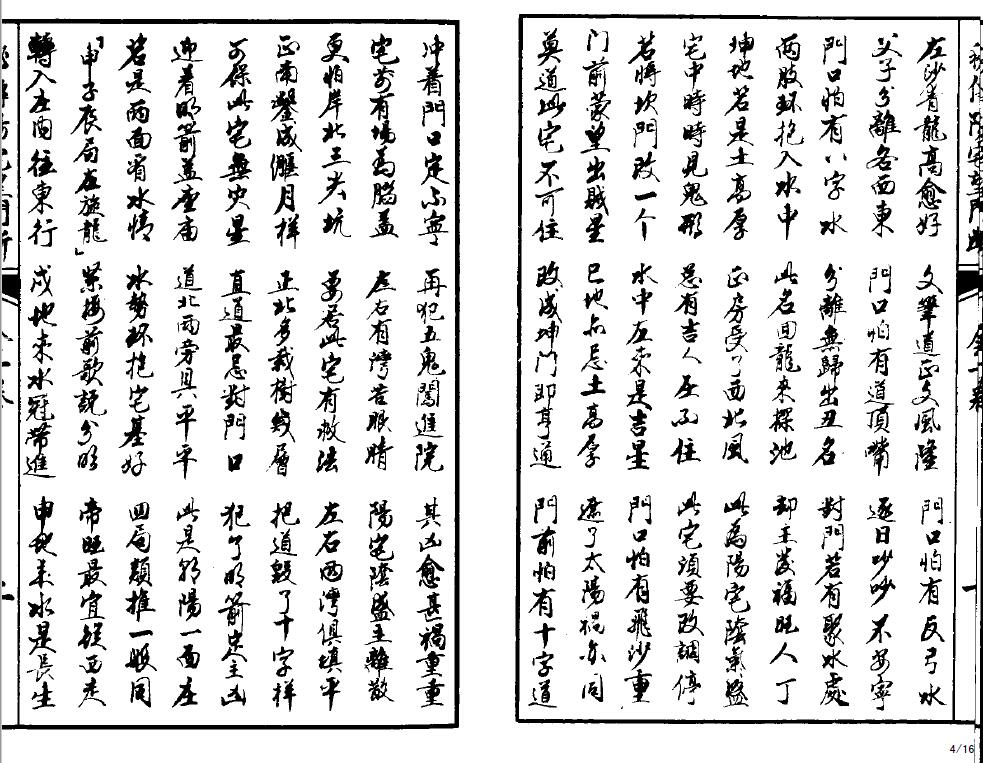 左沙青龍高愈好 文筆道正文風隆 門口怕有反弓水
父子分離各西東 門口怕有道頂嘴 逐日吵吵不安寧
門口怕有八字水 分離無歸出丑名 對門若有聚水處
兩股環抱入水中 此名回龍來探地 却主發福旺人丁
坤地若是土高厚 正房受了西北風 此為陽宅陰氣盛
宅中時時見鬼形 總有吉人居不住 此宅須要改調停
若將坎門改一个 水中左來是吉星 門口怕有飛沙重
门前蒙望出賊星 巳地亦忌土高厚 遮了太陽禍亦同
莫道此宅不可住 改成坤門即亨通 門前怕有十字道
冲着門口定不寧 再犯五鬼闖進院 其凶愈甚禍重重
宅前有塲為腦蓋 左右有灣苦眼睛 陽宅陰盛主離散
更怕岸北三尖坑 要若此宅有救法 左右兩灣俱填平
正南鑿成偃月樣 正北多栽樹幾層 把道毀了十字樣
可保此宅無灾星 直道最忌對門口 犯了明箭定主凶
迎着明箭蓋座庙 道北兩旁具平平 此是邪陽一面座
若是兩面有水情 水勢环抱宅基好 四局類推一般同
「申子辰局左旋龍」 緊接前歌說分明 帝旺最宜從西走
轉入左面往東行 戌地來水冠帶進 申地来水是長生
一
4/16